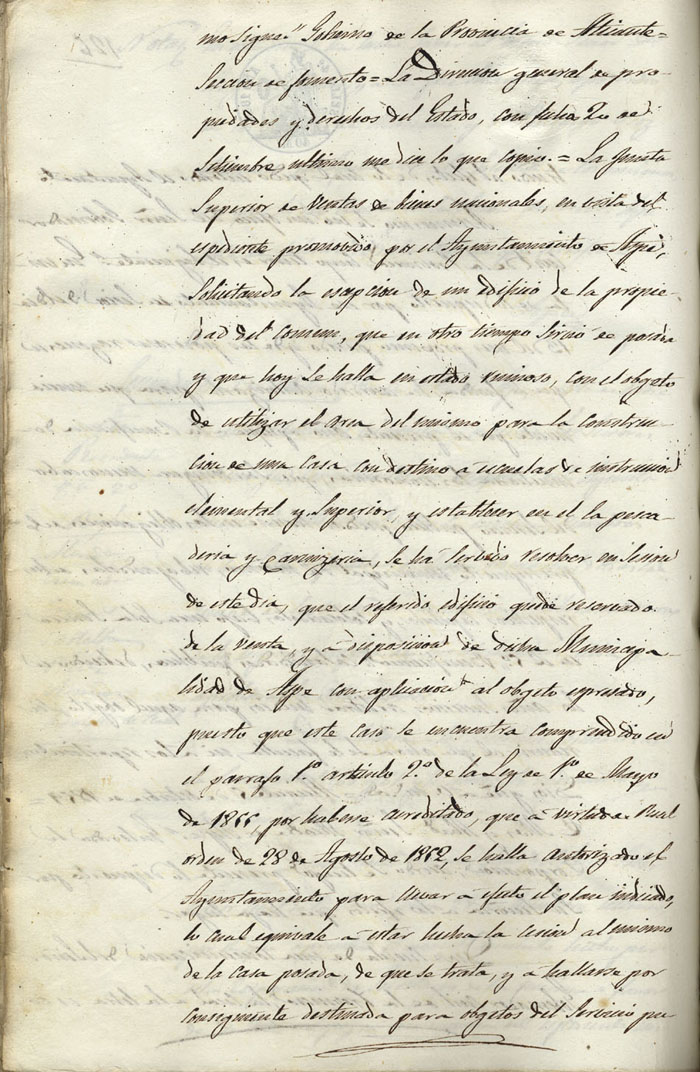 mo sigue." Gobierno de la Provincia de Alicante=
Seccion de fomento= La Direccion general de pro-
piedades y derechos del Estado, con fecha 20 de
Setiembre ultimo me dice lo que copio.= La Junta
Superior de Ventas de bienes nacionales, en vista del
espediente promovido por el Ayuntamiento de Aspe,
Solicitando la esepcion de un edificio de la propie-
dad del comun, que en otro tiempo sirvió de posada
y que hoy se halla en estado ruinoso, con el objeto
de utilizar el area del mismo para la construc-
cion de una casa con destino á escuelas de instruccion
elemental y Superior, y establecer en el la pesca-
deria y carnizeria, se há servido resolver en Sesion
de este dia, que el referido edificio quede reservado
de la venta, y a disposicion de dicha Municipa-
lidad de Aspe con aplicacion al objeto espresado,
puesto que este caso se encuentra comprendido en
el parrafo 1.º articulo 2.º de la Ley de 1.º de Mayo
de 1855, por haberse acreditado, que á virtud de Real
orden de 28 de Agosto de 1852, se halla autorizado el
Ayuntamiento para llevar a efecto el plan indicado,
lo cual equivale á estar hecha la cesion al mismo
de la casa posada, de que se trata, y a hallarse por
consiguiente destinada para objetos del Servicio pu